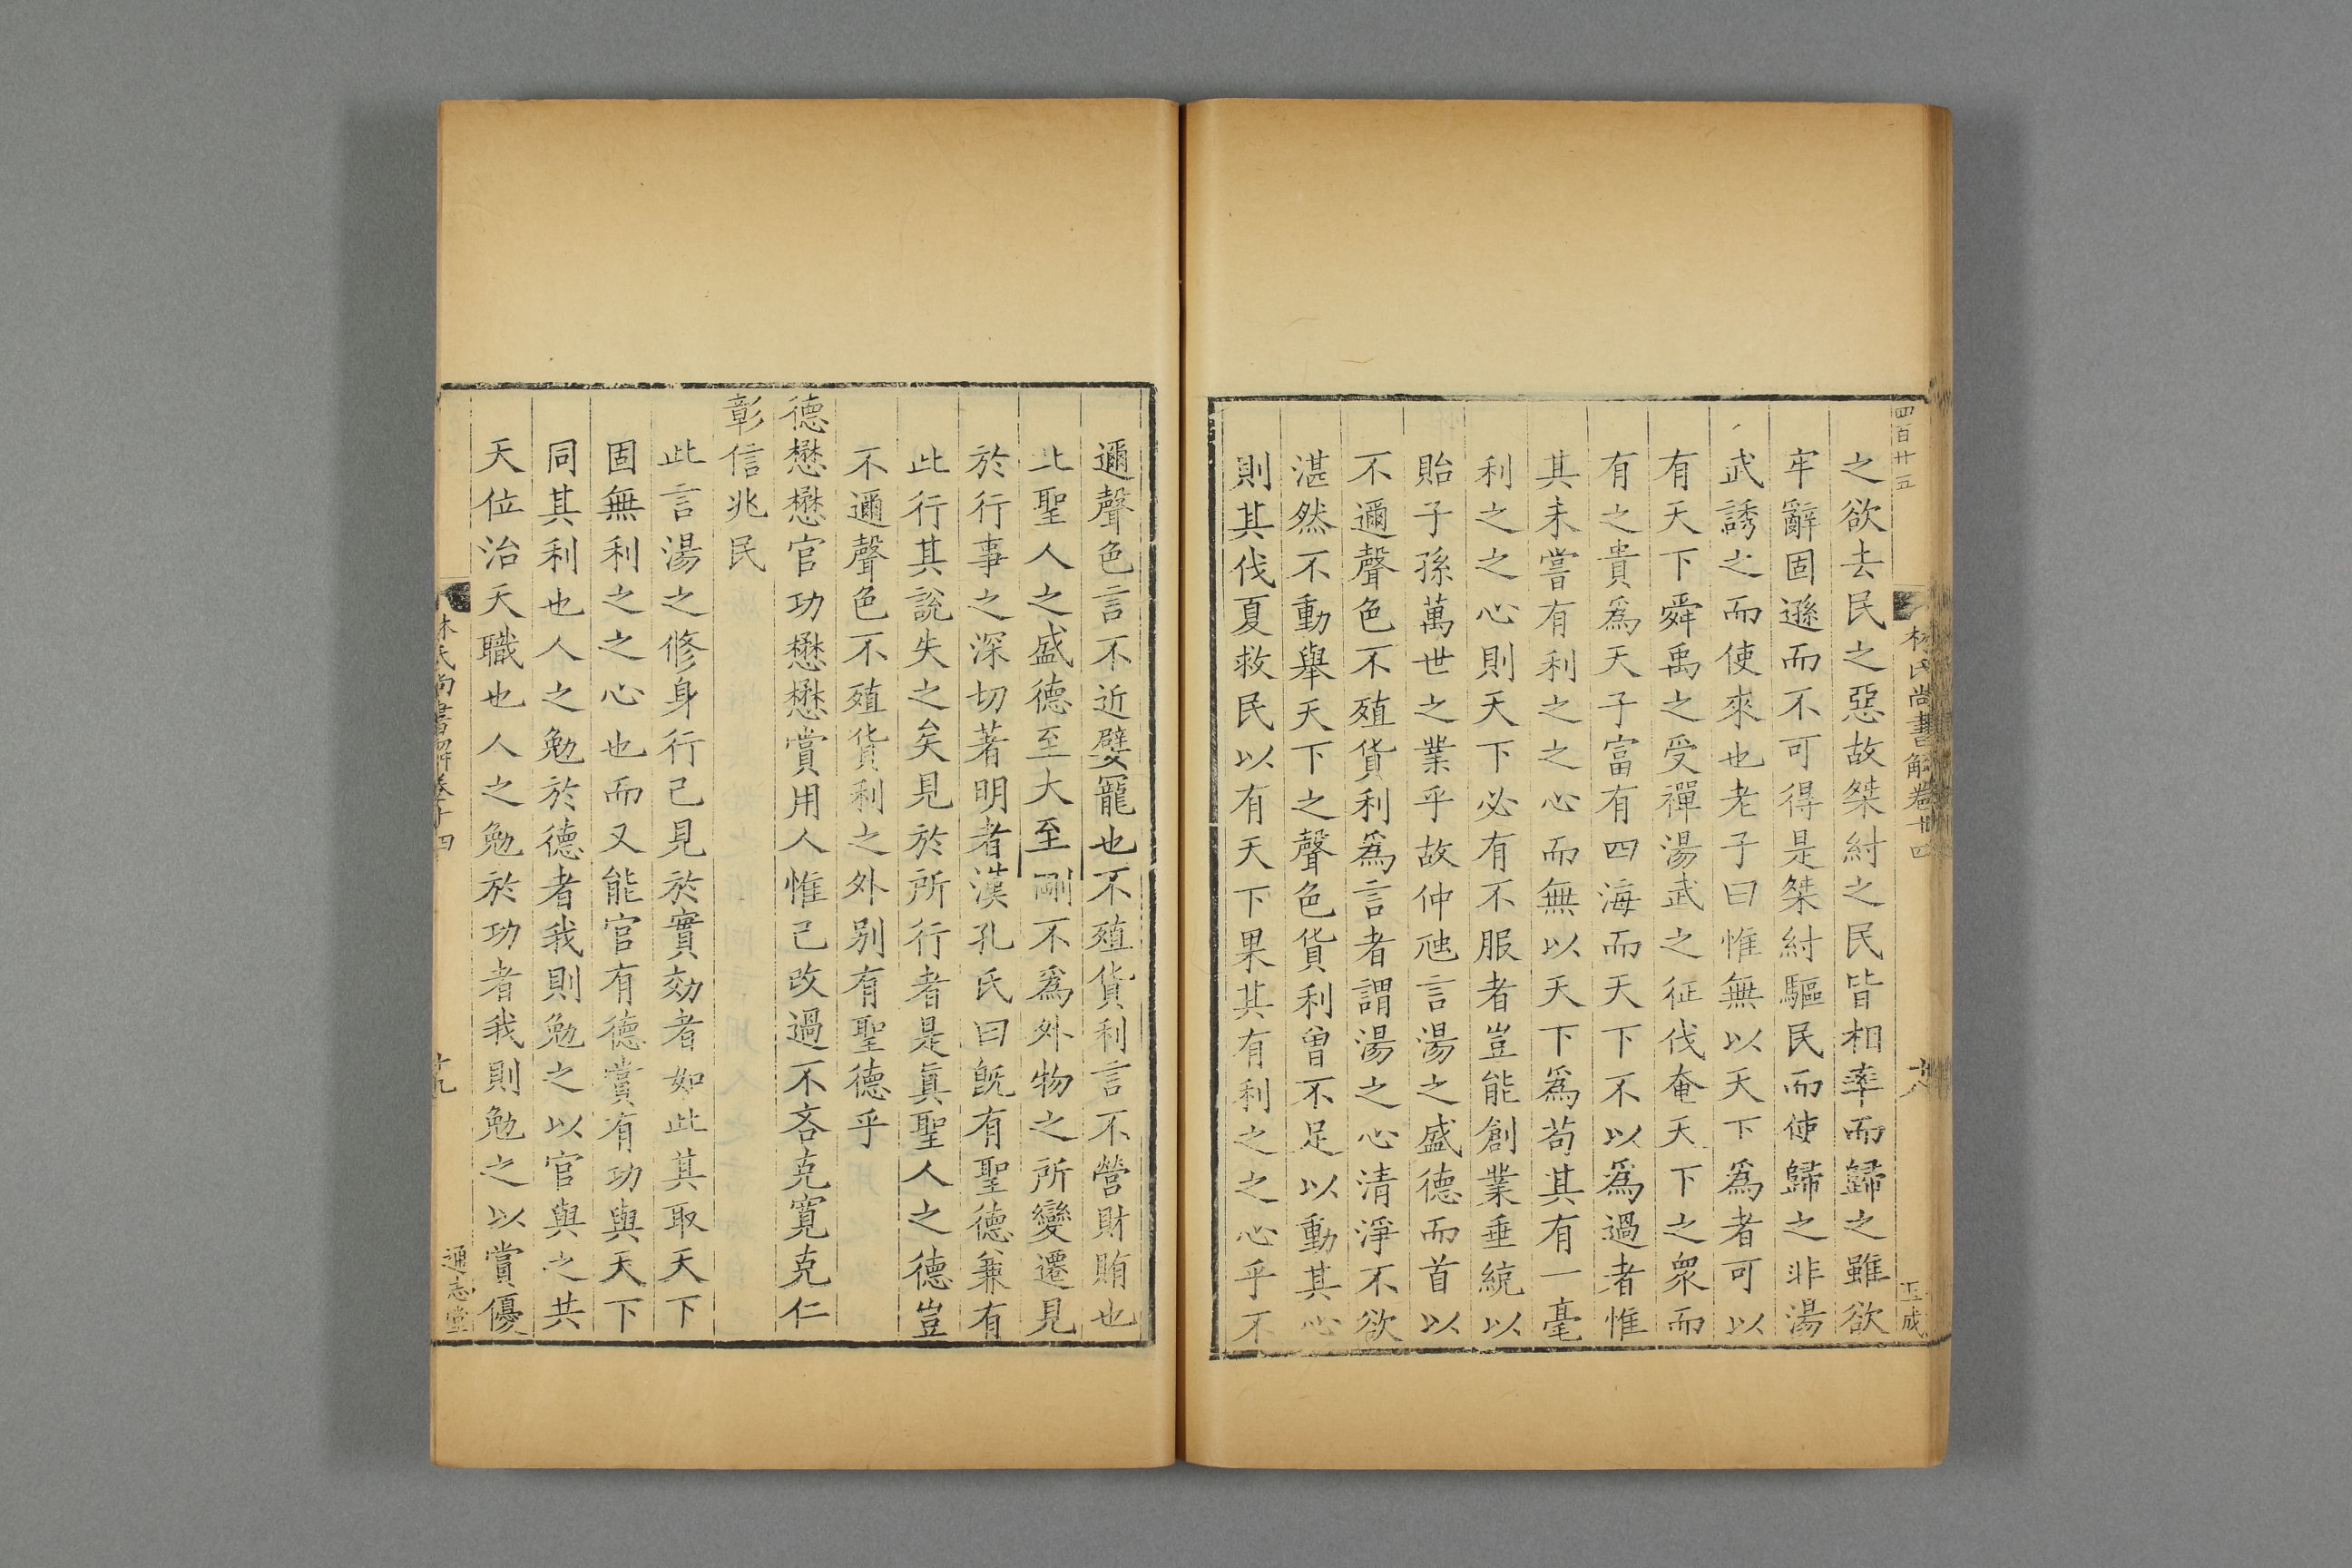 四百廿五
林氏尚書解卷十四
十八
玉成
之欲去民之惡故桀紂之民皆相率而歸之雖欲
牢辭固遜而不可得是桀紂驅民而使歸之非湯
武誘之而使來也老子曰惟無以天下爲者可以
有天下舜禹之受禪湯武之征伐奄天下之衆而
有之貴爲天子富有四海而天下不以爲過者惟
其未嘗有利之之心而無以天下爲苟其有一毫
利之之心則天下必有不服者豈能創業垂統以
貽子孫萬世之業乎故仲虺言湯之盛德而首以
不邇聲色不殖貨利爲言者謂湯之心清淨不欲
湛然不動舉天下之聲色貨利曾不足以動其心
則其伐夏救民以有天下果其有利之之心乎不
邇聲色言不近嬖寵也不殖貨利言不營財賄也
此聖人之盛德至大至剛不爲外物之所變遷見
於行事之深切著明者漢孔氏曰旣有聖德兼有
此行其說失之矣見於所行者是眞聖人之德豈
不邇聲色不殖貨利之外别有聖德乎
德懋懋官功懋懋賞用人惟己改過不吝克寛克仁
彰信兆民
此言湯之修身行己見於實効者如此其取天下
固無利之之心也而又能官有德賞有功與天下
同其利也人之勉於德者我則勉之以官與之共
天位治天職也人之勉於功者我則勉之以賞優
林氏尚書解卷十四
十九
通志堂